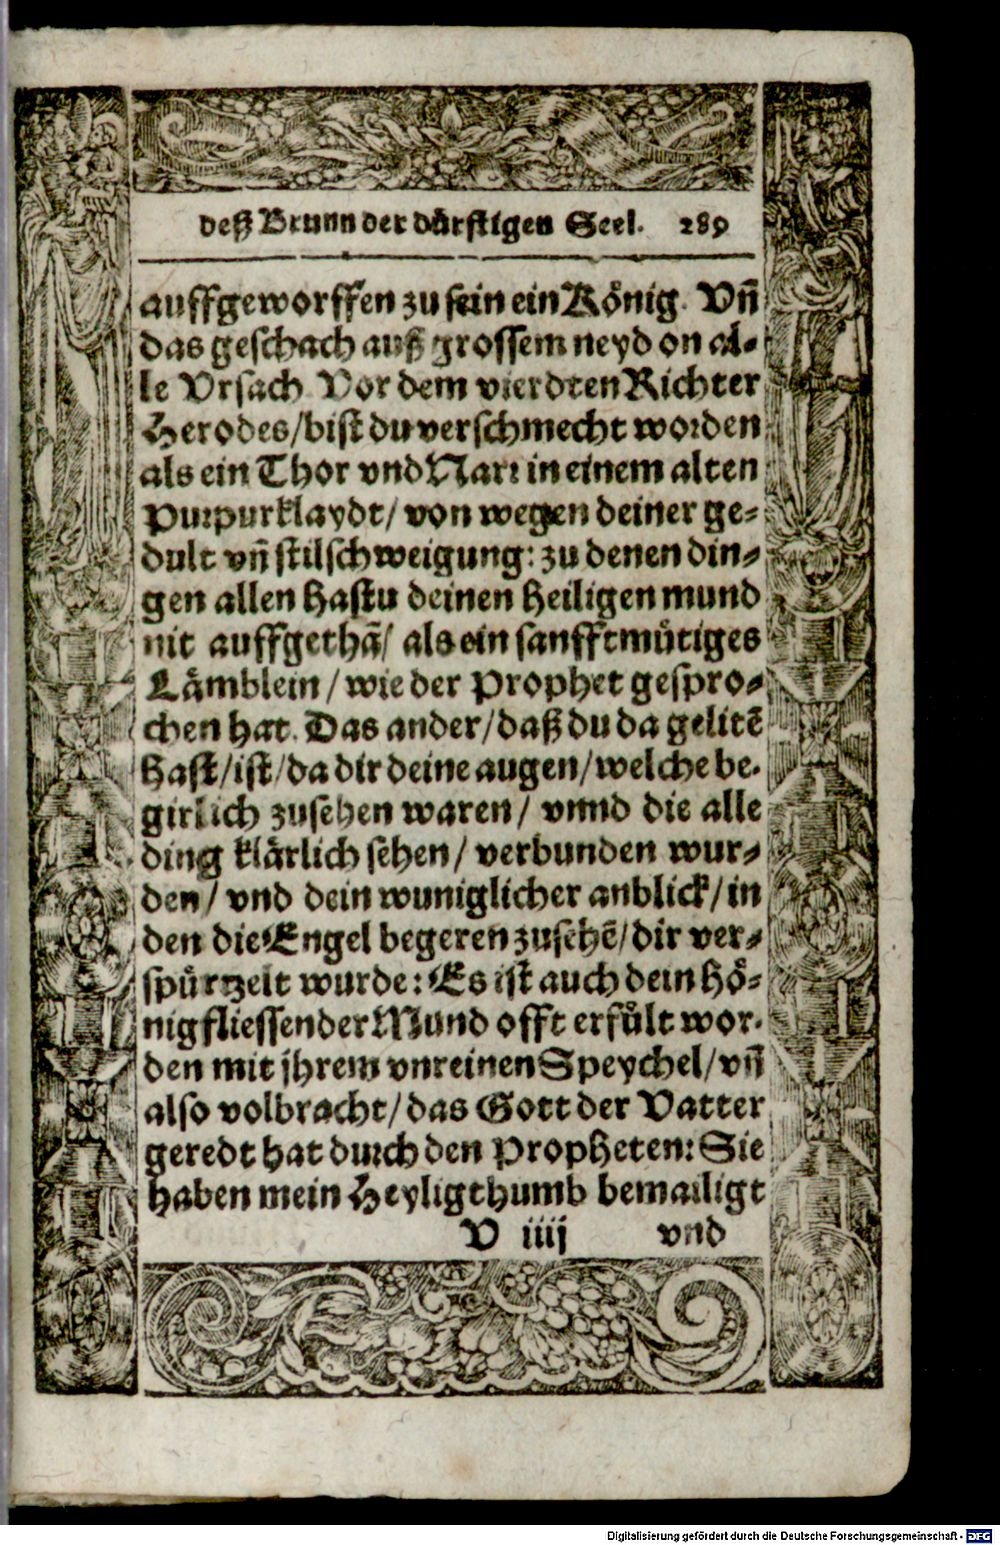 deß Brunn der dürstigen Seel. 289
auffgeworffen zu sein ein König. Vñ
das geschach auß grossem neyd on al-
le Vrsach. Vor dem vierdten Richter
Herodes/bist du verschmecht worden
als ein Thor vnd Narr in einem alten
Purpurklaydt/ von wegen deiner ge-
dult vñ stilschweigung: zu denen din-
gen allen hastu deinen heiligen mund
nit auffgethã/ als ein sanfftmütiges
Lämblein / wie der Prophet gespro-
chen hat. Das ander/daß du da gelitẽ
hast/ist/da dir deine augen/welche be-
girlich zusehen waren/ vnnd die alle
ding klärlich sehen/ verbunden wur-
den/ vnd dein wuniglicher anblick/in
den die Engel begeren zusehẽ/dir ver-
spürtzelt wurde: Es ist auch dein Hö-
nigfliessender Mund offt erfült wor-
den mit jhrem vnreinen Speychel/vñ
also volbracht/das Gott der Vatter
geredt hat durch den Propheten: Sie
haben mein Heyligthumb bemailigt
V iiij vnd
Digitalisierung gefördert durch die Deutsche Forschungsgemeinschaft - DFG